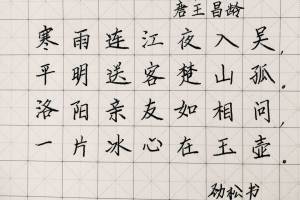 唐王昌龄
寒雨连江夜入吴，
平明送客楚山孤．
洛阳亲友如相问，
一片冰心在玉壶．
劲松书